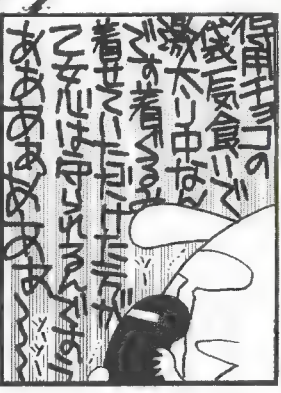 得用チョコの
袋反食いで
激太り中なん
です着ぐるみ
着せていただけた方が
乙女心は守られるんですが
ああああああ〜〜〜
ツー
ツー
ツー